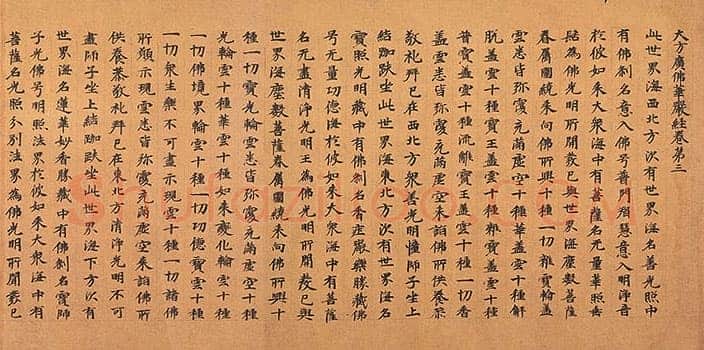 大方廣佛華嚴經卷第三
此世界海西北方次有世界海名善光照中
有佛剎名意入佛号普門慧意入明淨音
於彼如来大衆海中有菩薩名无量華照垂
髻為佛光明所開發已與世界海塵數菩薩
眷屬圍繞来向佛所興十種一切雜寶輪蓋
雲悉皆弥覆充滿虚空十種華蓋雲十種解
脱蓋雲十種寶王蓋雲十種雜寶蓋雲十種
普寶蓋雲十種流離寶王蓋雲十種一切香
蓋雲悉皆弥覆充滿虚空来詣佛所供養恭
敬礼拜已在西北方衆善光明幢師子坐上
結跏趺坐此世界海東北方次有世界海名
寶照光明藏中有佛剎名香莊嚴樂勝藏佛
号无量功德海於彼如来大衆海中有菩薩
名无盡清淨光明王為佛光明所開發已與
世界海塵數菩薩眷屬圍繞来向佛所興十
種一切寶光輪雲悉皆弥覆充滿虚空十種
光輪雲十種華雲十種如来變化輪雲十種
一切佛境界輪雲十種一切功德寶雲十種
一切衆生樂不可盡示現雲十種一切諸佛
所願示現雲悉皆弥覆充滿虚空来詣佛所
供養恭敬礼拜已在東北方清淨光明不可
盡師子坐上結跏趺坐此世界海下方次有
世界海名蓮華妙香勝藏中有佛剎名寶師
子光佛号明照法界於彼如来大衆海中有
菩薩名光照分別法界為佛光明所開發已